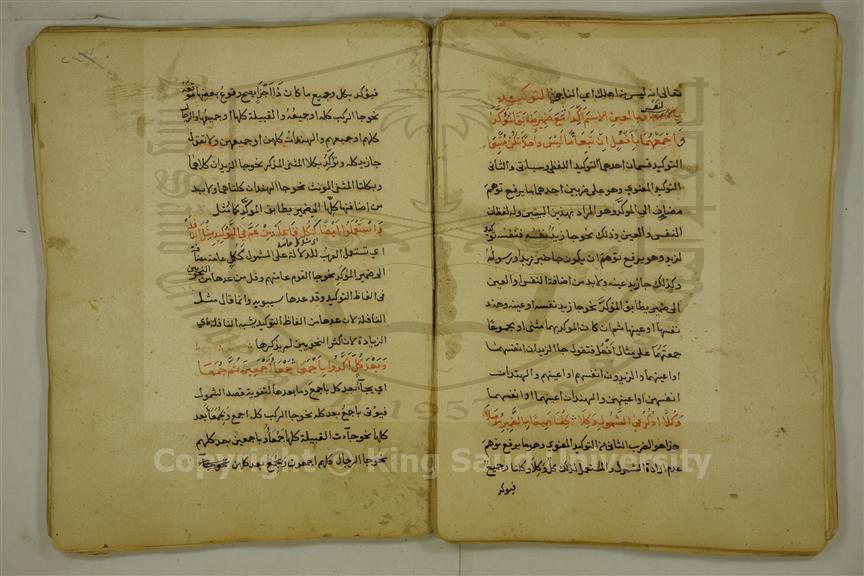 تعالى انه ليس من اهلك اي الناجين التوكيد
بالنفس او بالعين الاسم اكدا مع ضمير طابق المؤكدا
واجمعهما بافعل ان تبعا ما ليس واحدا تكن متبعا
التوكيد قسمان احدهما التوكيد اللفظي وسياتي والثاني
التوكيد المعنوي وهو على ضربين احدهما ما يرفع توهم
مضاف الى المؤكد وهو المراد بهذين البيتين وله لفظان
النفس والعين وذلك نحو جا زيد نفسه فنفسه توكيد
لزيد وهو يرفع توهم ان يكون جا خبر زيد او رسوله
وكذلك جا زيد عينه ولابد من اضافة النفس او العين
الى ضمير يطابق المؤكد نحو جا زيد نفسه او عينه وهند
نفسها او عينها ثم ان كان الموكد بهما مثنى او مجموعا
جمعتهما على مثال افعل فتقول جا الزيدان انفسهما
او اعينهما والزيدون انفسهم او اعينهم والهندات
انفسهن او اعينهن والهندان اعينهما او انفسهما
وكلا اذكر في الشمول وكلا كلتا جميعا بالضمير موصلا
هذا هو الضرب الثاني من التوكيد المعنوي وهو ما يرفع توهم
عدم ارادة الشمول والمستعمل لذلك كل وكلا وكلتا وجميع
فيوكد
فيؤكد بكل وجميع ما كان ذا اجزا يصح وقوع بعضها موقعه
نحو جا الركب كله او جميعه والقبيلة كلها او جميعها والرجال
كلهم او جميعهم والهندات كلهن او جميعهن ولا تقول
جا زيد كله ويؤكد بكلا المثنى المذكر نحو جا الزيدان كلاهما
وبكلتا المثنى المونث نحو جا الهندان كلتاهما ولا بد
من اضافتها كلها الى ضمير يطابق المؤكد كما مثل
واستعملوا ايضا ككل فاعله من عم في التوكيد مثل النافله
اي تستعمل العرب للدلالة على الشمول ككل عامة مضافة
الى ضمير المؤكد نحو جا القوم عامتهم وقل من عدها من النحويين
في الفاظ التوكيد وقد عدها سيبويه وانما قال مثل
النافلة لان عدها من الفاظ التوكيد يشبه النافلة اي
الزيادة لان اكثر النحويين لم يذكرها
وبعد كل اكدوا باجمعا جمعا اجمعين ثم جمعا
اي يجا بعد كل باجمع وما بعدها لتقوية قصد الشمول
فيؤتى باجمع بعد كله نحو جا الركب كله اجمع وجمعا بعد
كلها نحو جات القبيلة كلها جمعا وباجمعين بعد كلهم
نحو جا الرجال كلهم اجمعون وبجمع بعد كلهن
Copyright © King Saud University
1957